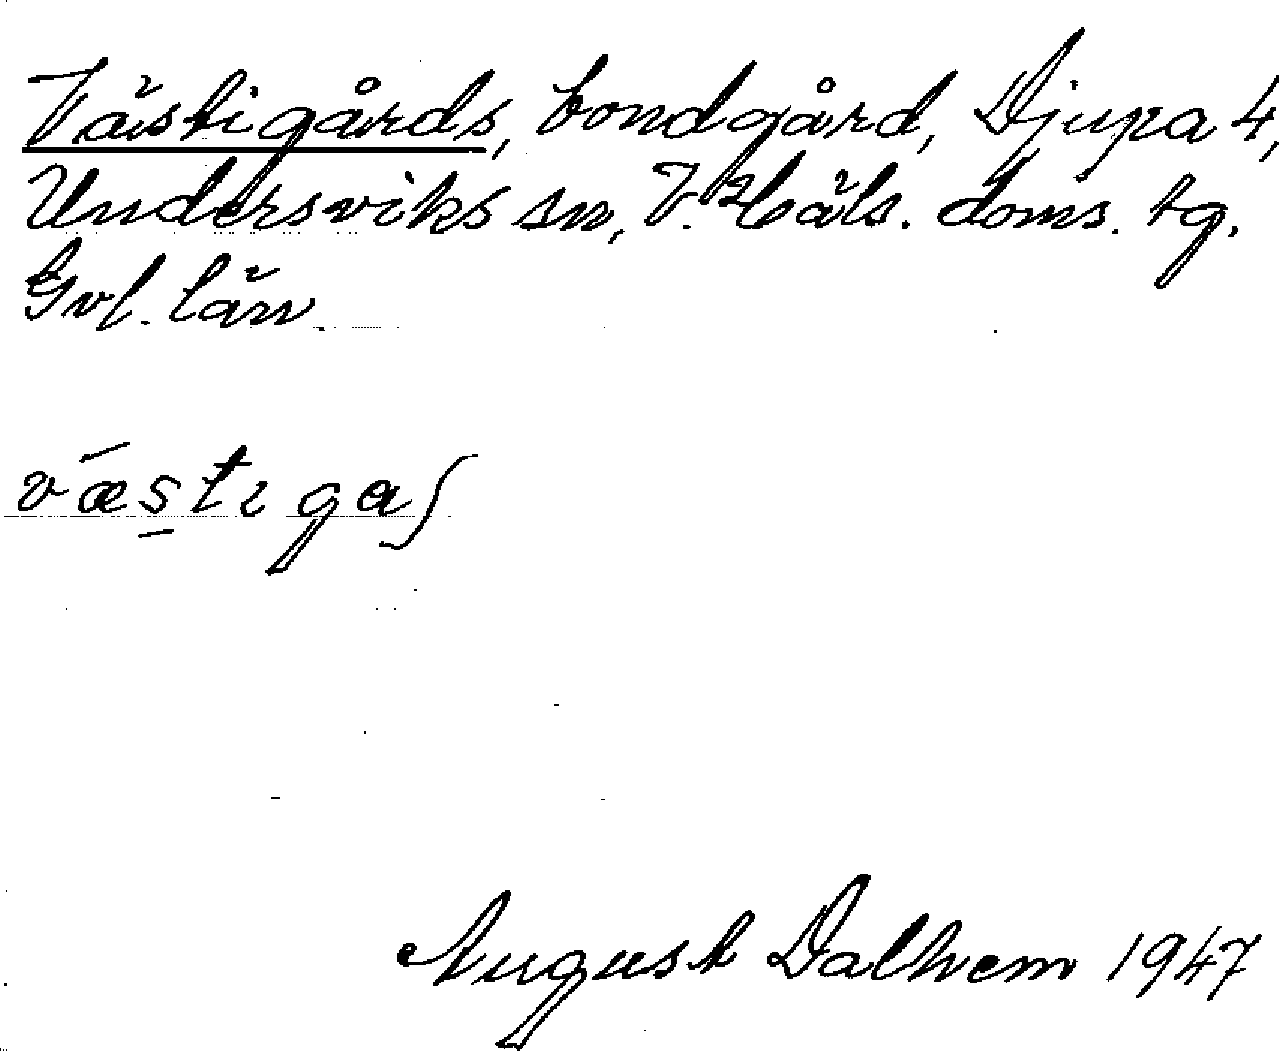 Västigårds, bondgård, Djupa 4,
Undersviks sn, V. Häls. doms. tg.
Gvl. län.
væstigaʃ
August Dalhem 1947